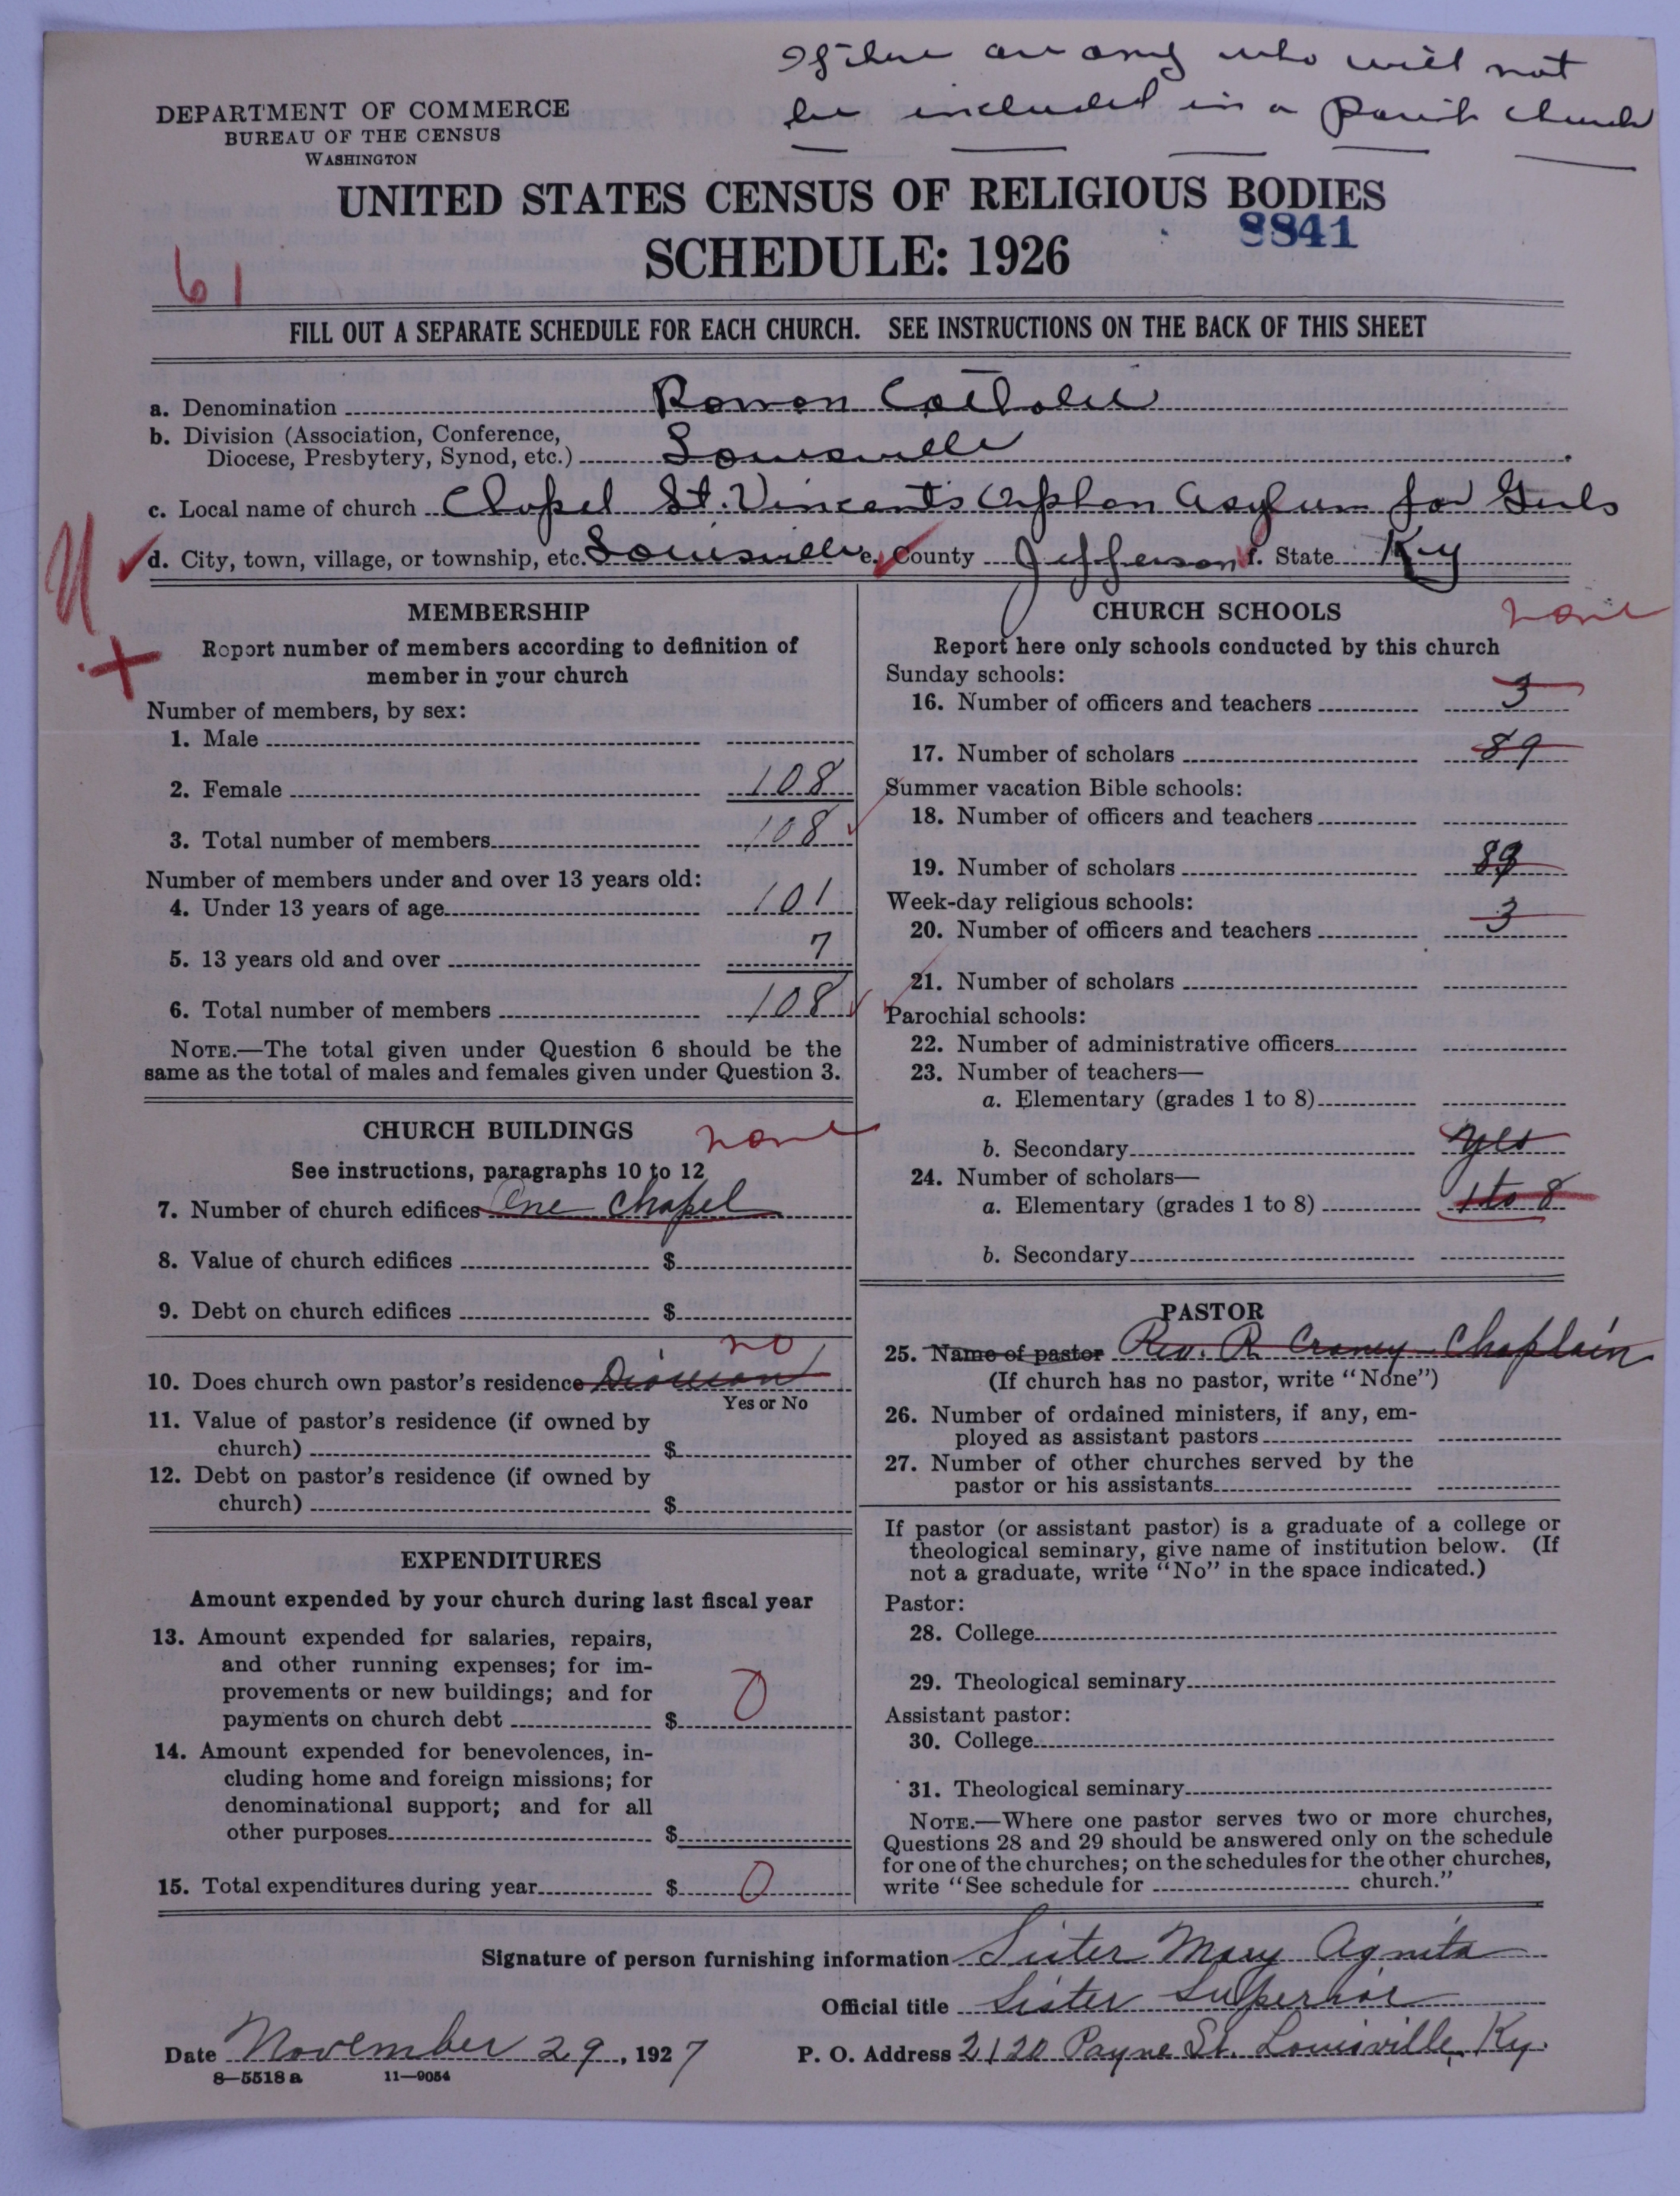 If there are any who will not
be included in a parish church
DEPARTMENT OF COMMERCE
BUREAU OF THE CENSUS
WASHINGTON
UNITED STATES CENSUS OF RELIGIOUS BODIES
8841
SCHEDULE: 1926
61
FILL OUT A SEPARATE SCHEDULE FOR EACH CHURCH. SEE INSTRUCTIONS ON THE BACK OF THIS SHEET
a. Denomination Roman Catholic
b. Division (Association, Conference,
Diocese, Presbytery, Synod, etc.) Louisville
c. Local name of church Chapel St. Vincents Orphan Asylum for Girls
d. City, town, village, or township, etc. Louisville e. County Jefferson f. State Ky
MEMBERSHIP
Report number of members according to definition of
member in your church
Number of members, by sex:
1. Male
2. Female 108
3. Total number of members 108
Number of members under and over 13 years old:
4. Under 13 years of age 101
5. 13 years old and over 7
6. Total number of members 108
NOTE.—The total given under Question 6 should be the
same as the total of males and females given under Question 3.
CHURCH BUILDINGS none
See instructions, paragraphs 10 to 12
7. Number of church edifices One Chapel
8. Value of church edifices $
9. Debt on church edifices $
no
10. Does church own pastor's residence
Yes or No
11. Value of pastor's residence (if owned by
church) $
12. Debt on pastor's residence (if owned by
church) $
EXPENDITURES
Amount expended by your church during last fiscal year
13. Amount expended for salaries, repairs,
and other running expenses; for im-
provements or new buildings; and for
payments on church debt $ 0
14. Amount expended for benevolences, in-
cluding home and foreign missions; for
denominational support; and for all
other purposes $
15. Total expenditures during year $ 0
CHURCH SCHOOLS none
Report here only schools conducted by this church
Sunday schools:
16. Number of officers and teachers 3
17. Number of scholars 89
Summer vacation Bible schools:
18. Number of officers and teachers
19. Number of scholars 89
Week-day religious schools:
20. Number of officers and teachers 3
21. Number of scholars
Parochial schools:
22. Number of administrative officers
23. Number of teachers—
a. Elementary (grades 1 to 8)
b. Secondary yes
24. Number of scholars—
a. Elementary (grades 1 to 8) 1 to 8
b. Secondary
PASTOR
25. Name of pastor Rev. R. Craney Chaplain
(If church has no pastor, write "None")
26. Number of ordained ministers, if any, em-
ployed as assistant pastors
27. Number of other churches served by the
pastor or his assistants
If pastor (or assistant pastor) is a graduate of a college or
theological seminary, give name of institution below. (If
not a graduate, write "No" in the space indicated.)
Pastor:
28. College
29. Theological seminary
Assistant pastor:
30. College
31. Theological seminary
NOTE.—Where one pastor serves two or more churches,
Questions 28 and 29 should be answered only on the schedule
for one of the churches; on the schedules for the other churches,
write "See schedule for church."
Signature of person furnishing information Sister Mary Agnita
Official title Sister Superior
Date November 29, 1927 P. O. Address 2120 Payne St. Louisville, Ky.
8—5518a 11—9054